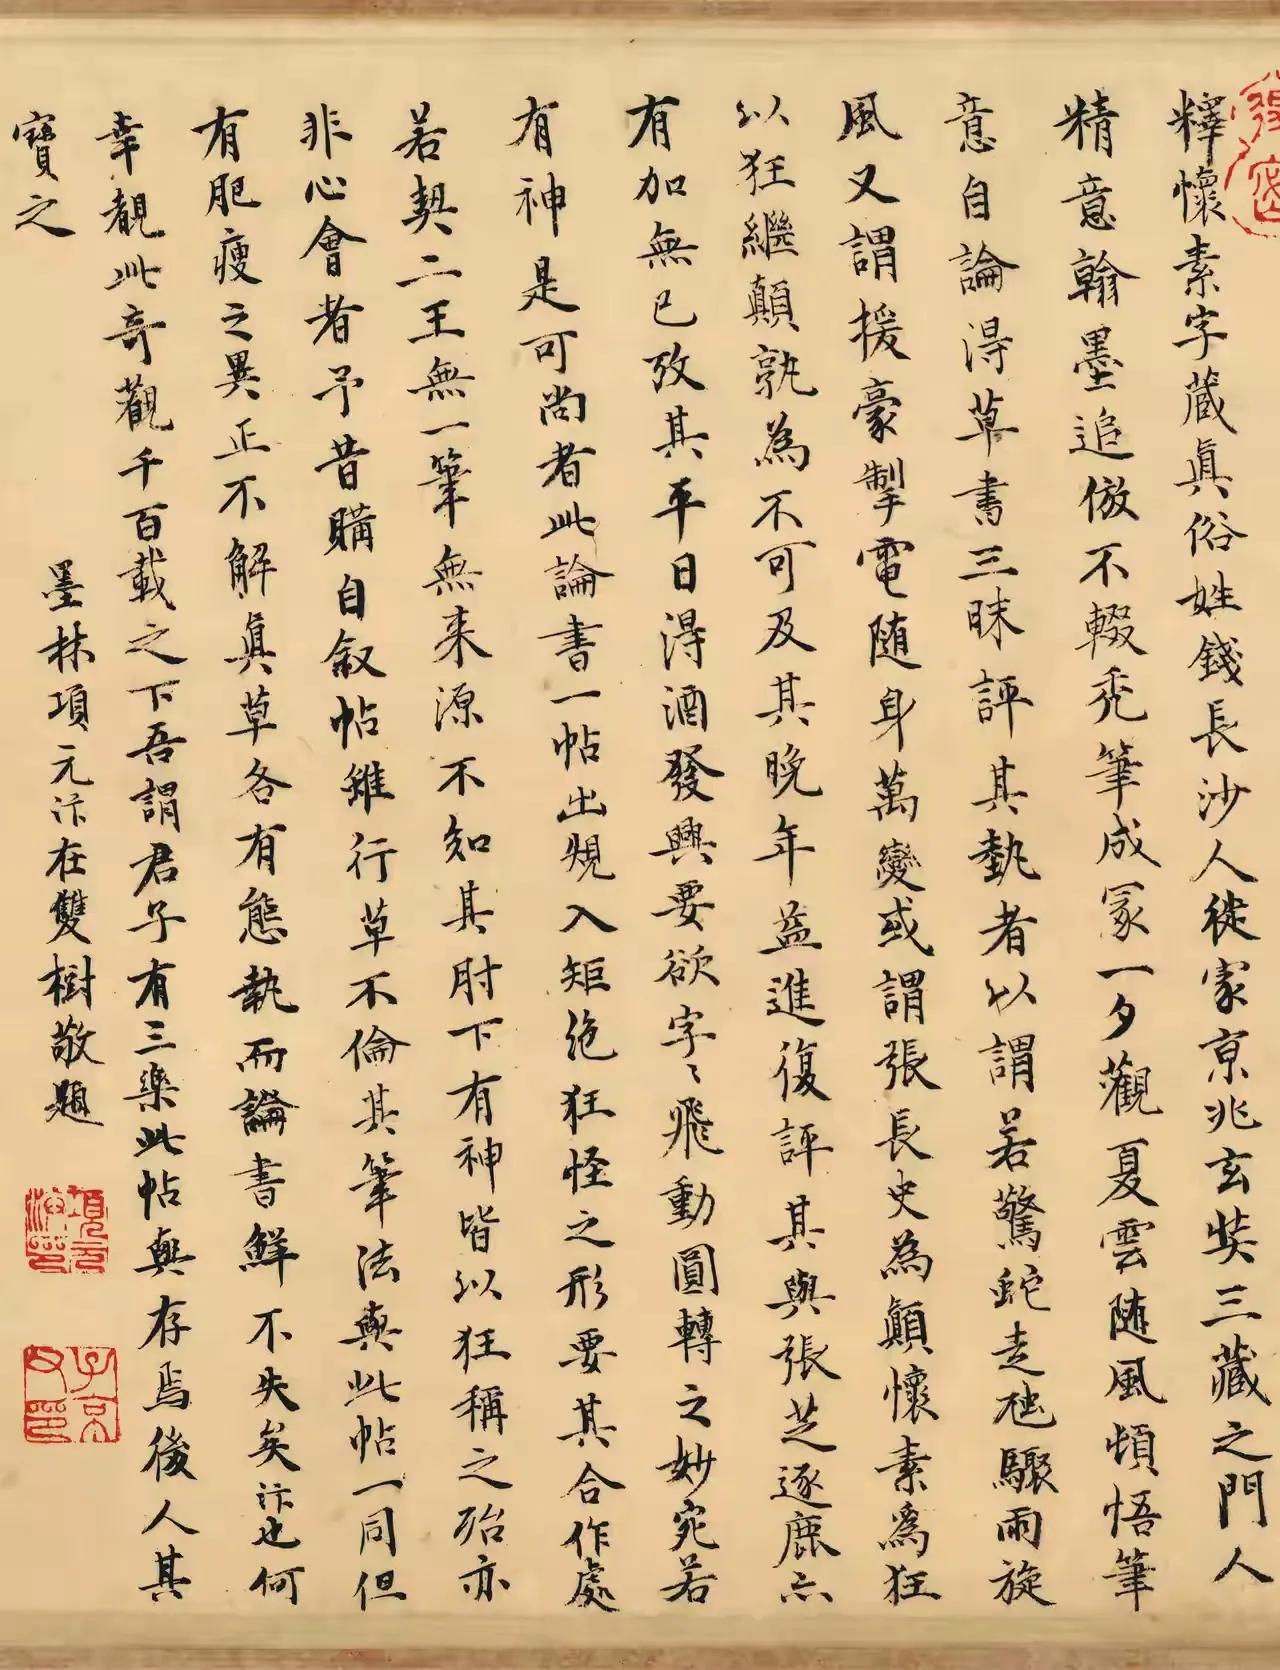 釋懷素字藏眞俗姓錢長沙人徙家京兆玄奘三藏之門人
精意翰墨追倣不輟禿筆成冢一夕觀夏雲隨風頓悟筆
意自論得草書三昧評其執者以謂若驚蛇走虺驟雨旋
風又謂援豪掣電随身萬變或謂張長史為顛懷素爲狂
以狂繼顛孰為不可及其晚年益進復評其與張芝逐鹿亦
有加無已攷其平日得酒發興要欲字〻飛動圓轉之妙宛若
有神是可尚者此論書一帖出規入矩絶狂怪之形要其合作處
若契二王無一筆無来源不知其肘下有神皆以狂稱之殆亦
非心會者予昔購自叙帖雖行草不倫其筆法與此帖一同但
有肥瘦之異正不解眞草各有態執而論書鮮不失矣汴也何
幸覩此奇觀千百載之下吾謂君子有三樂此帖與存焉後人其
寶之
墨林項元汴在雙樹敬題
項元汴印
子京父印